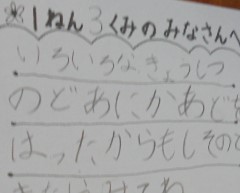 ※1ねん3くみのみなさんへ
いろいろなきょうしつ
のどあにかあど
はったからもしその